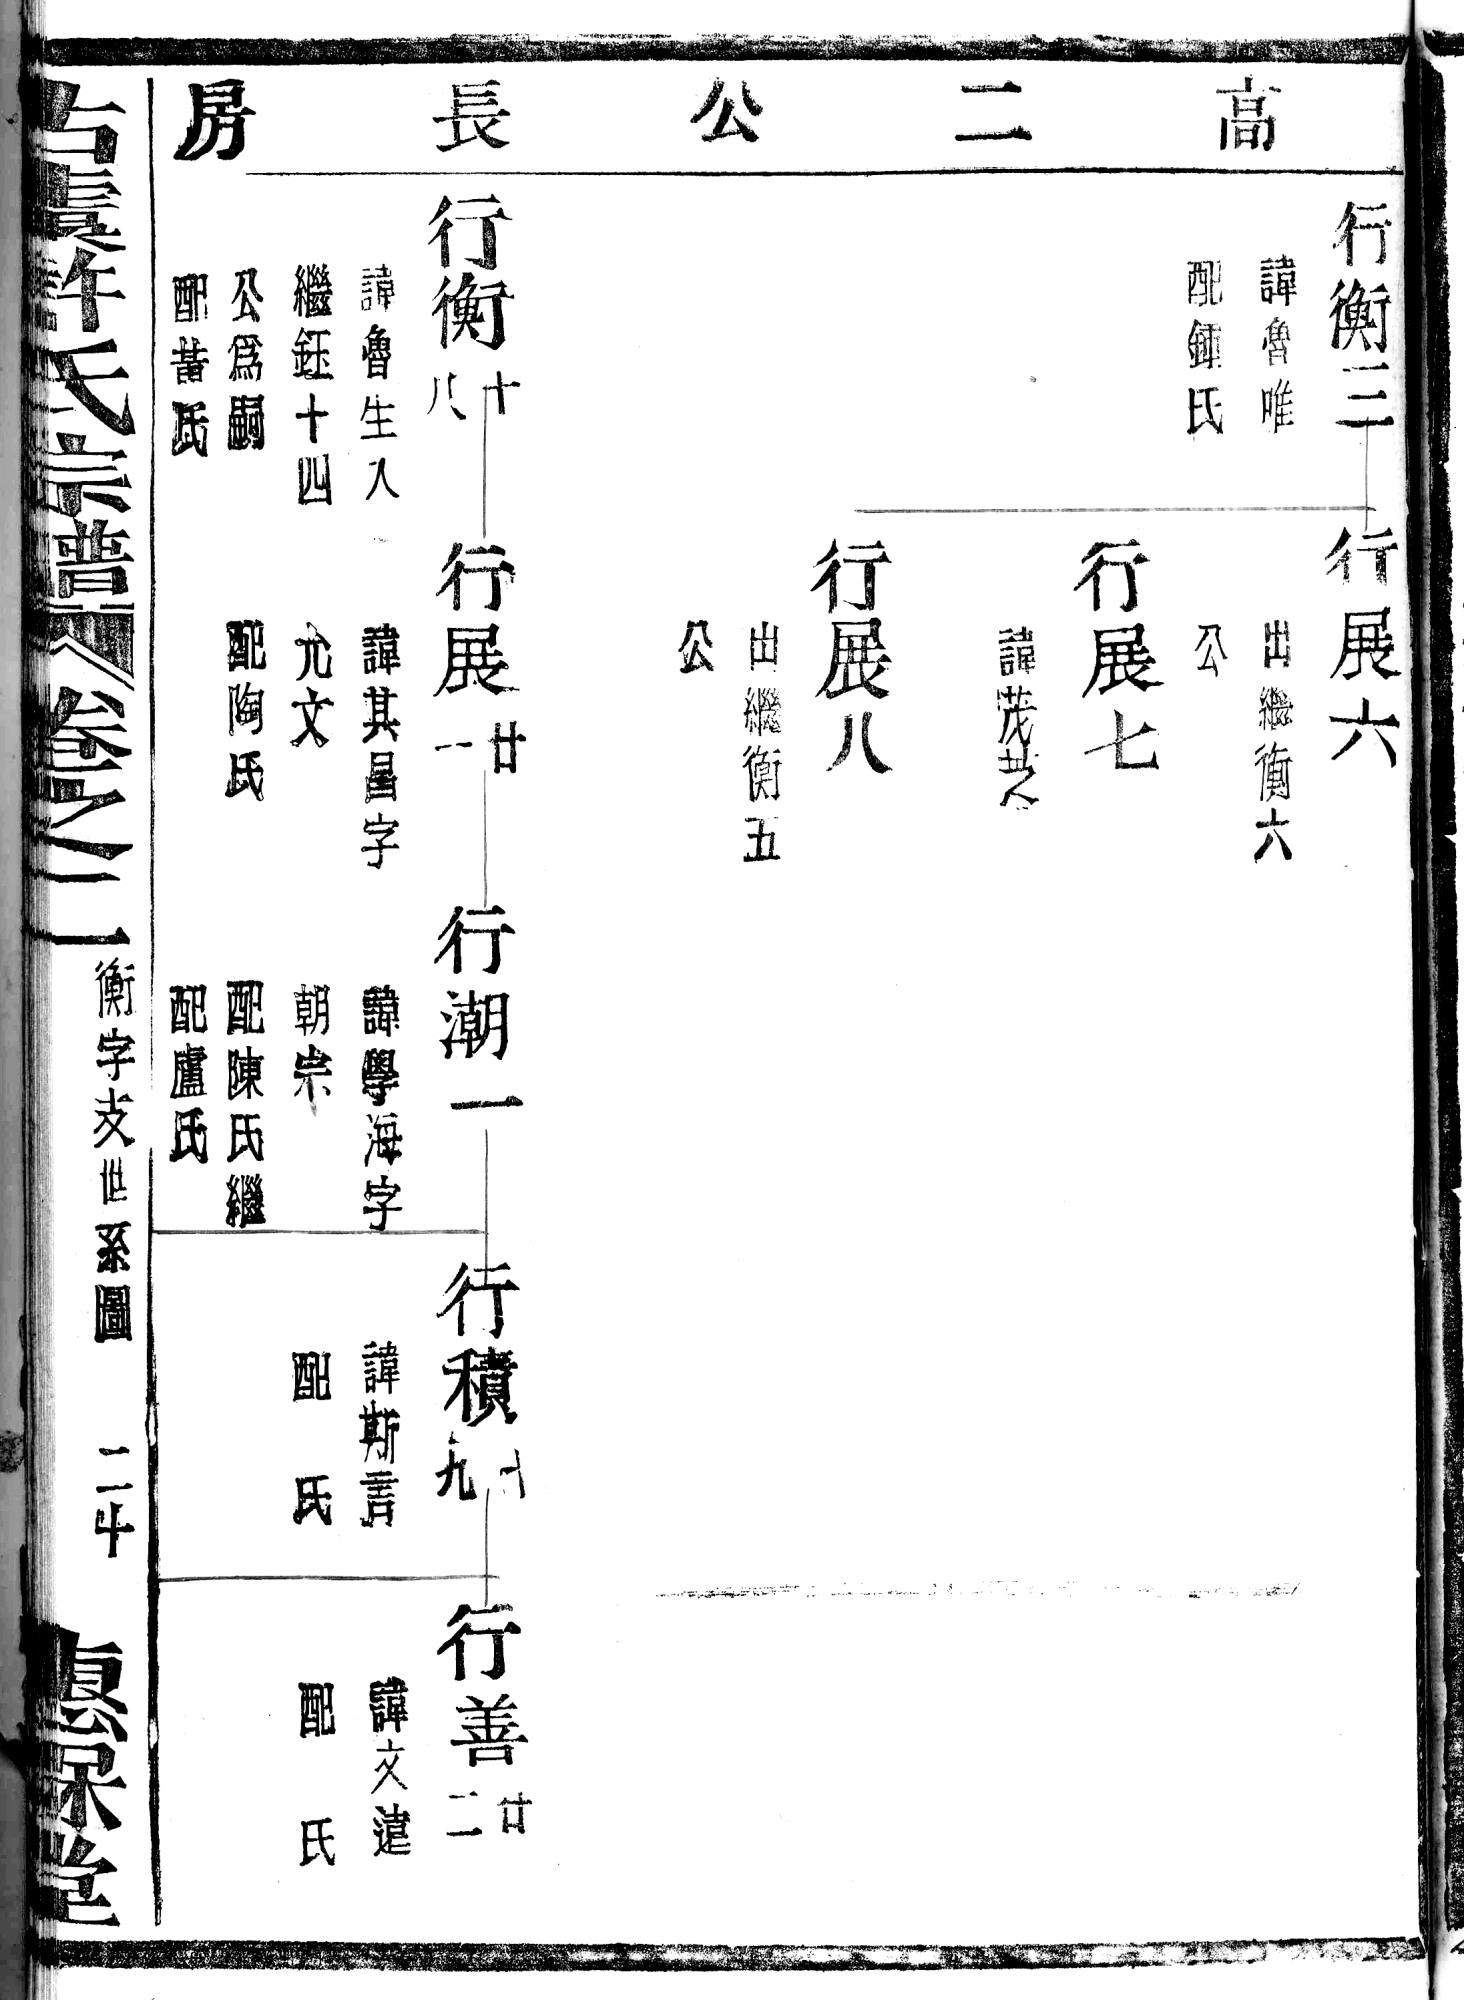 高二公長房
行衡三
諱魯唯
配鍾氏
行展六
出繼衡六
公
行展七
諱茂芝
行展八
出繼衡五
公
行衡十八
諱魯生入
繼鈺十四
公爲嗣
配黃氏
行展廿一
諱其昌字
允文
配陶氏
行潮一
諱學海字
朝宗
配陳氏繼
配盧氏
行積十九
諱斯言
配 氏
行善廿二
諱文
配 氏
古虞許氏宗譜 卷之二 衡字支世系圖 二十